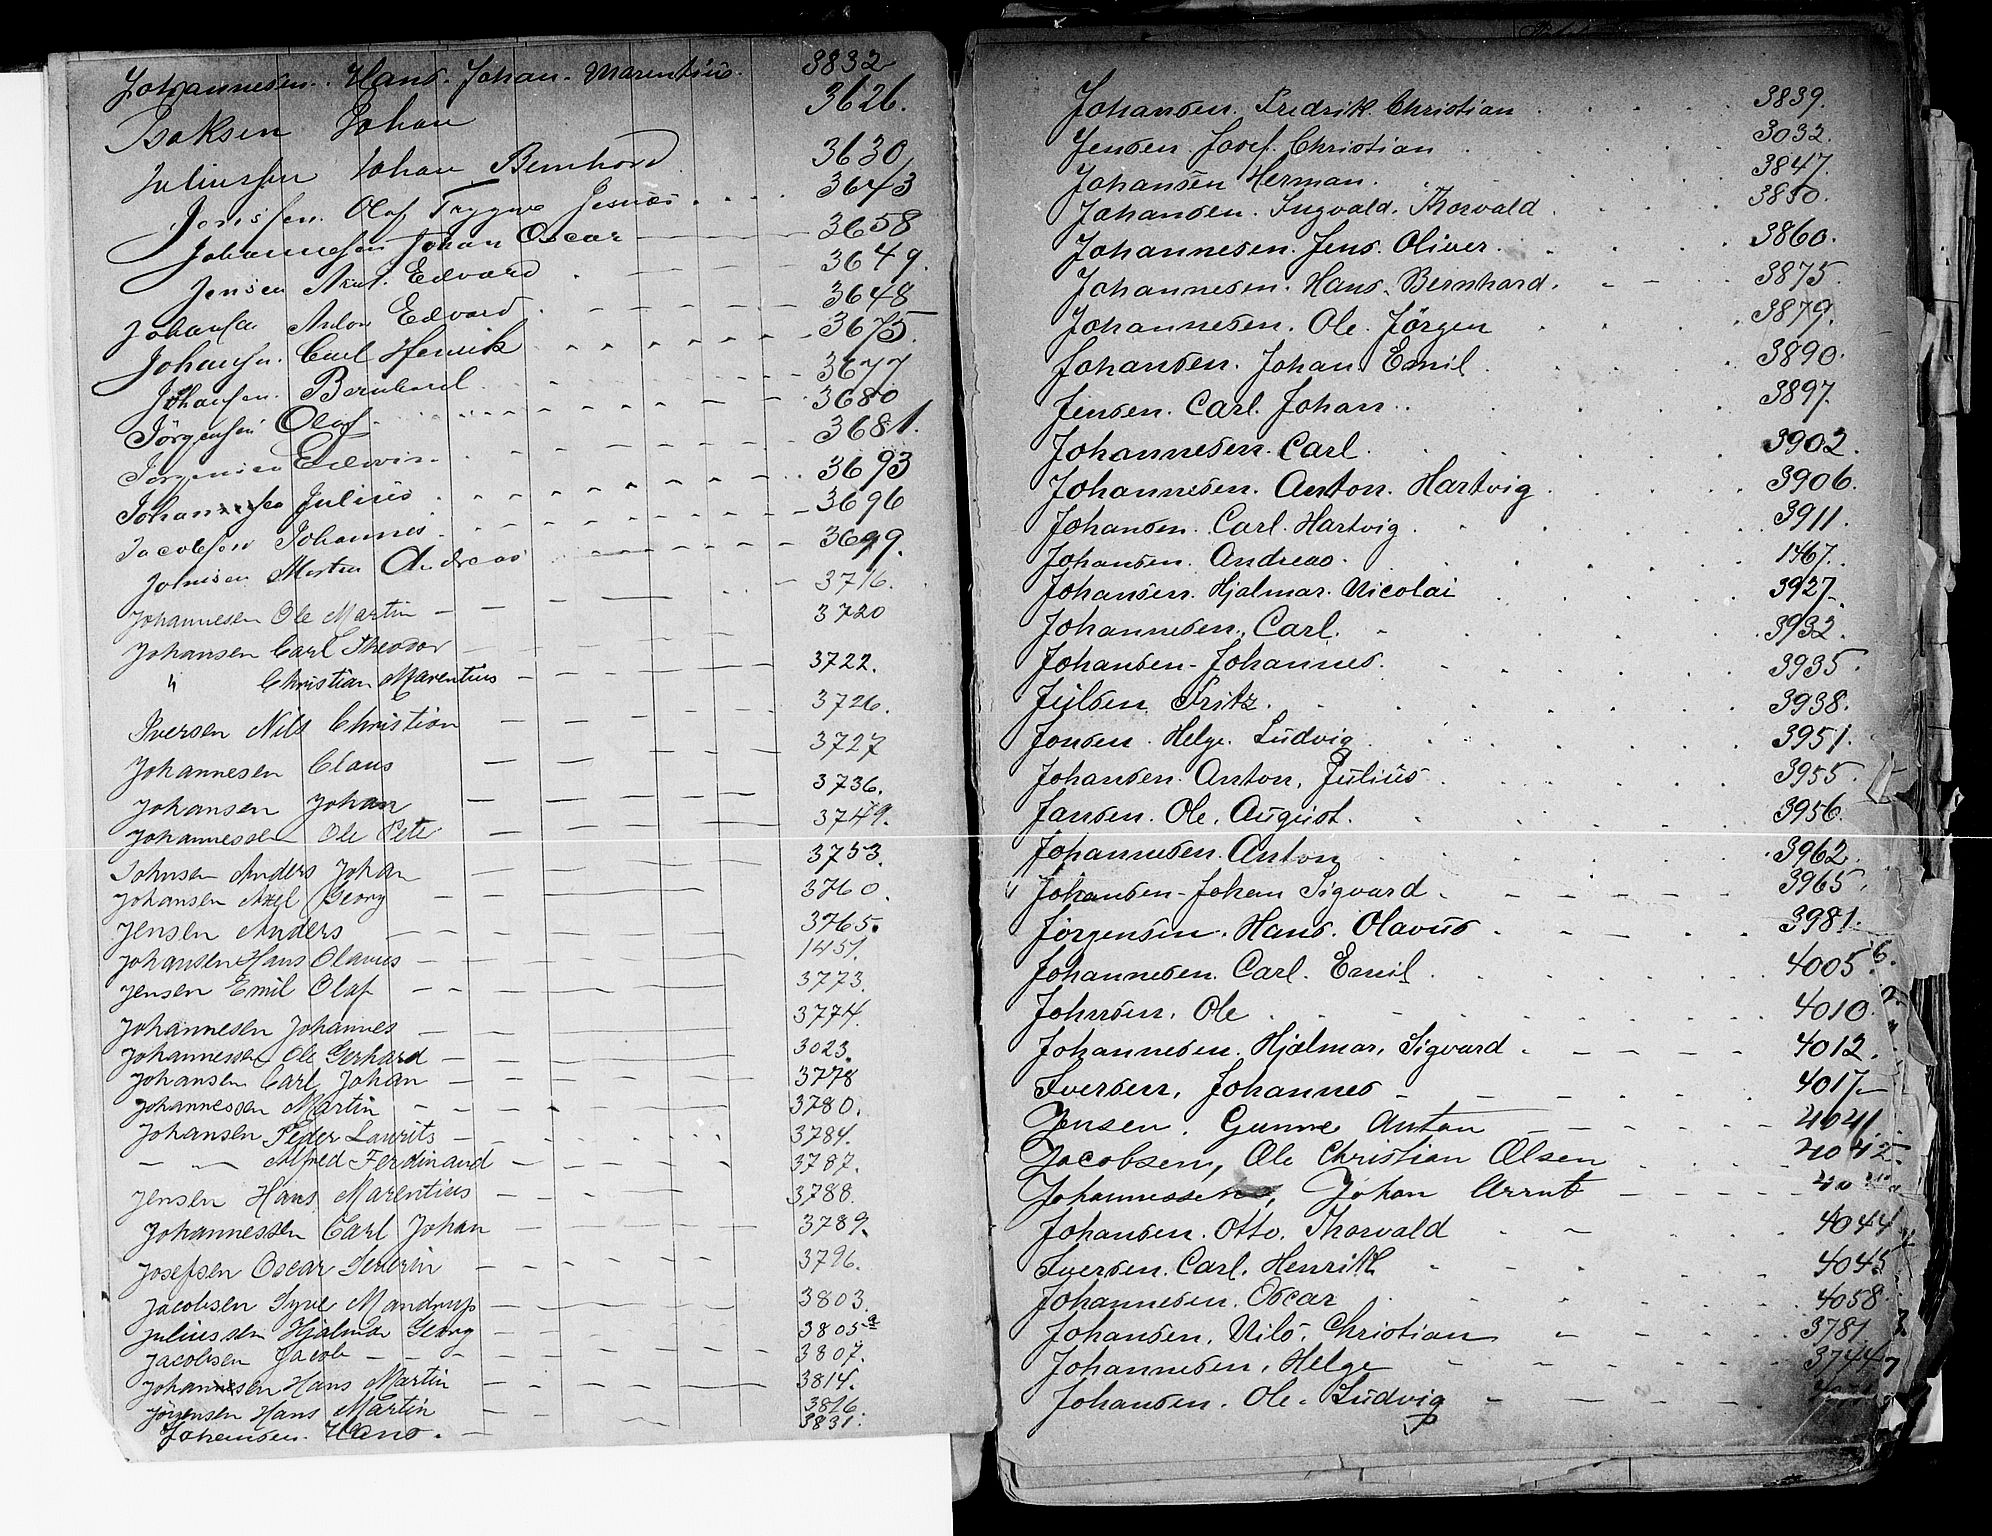 Johannesen. Hans. Johan. Marentius. 3832
Isaksen Johan 3626.
Juliussen Johan Bernhard 3630
Jonssen. Olaf Trygve Jesnæs 3643
Johannessen Johan Oscar 3658
Jensen Arnt. Edvard 3649.
Johansen Anton Edvard 3648
Johansen. Carl Henrik 3675.
Johansen. Bernhard 3677
Jörgensen Olaf. 3680
Jörgensen Edwin. 3681.
Johansen Julius 3693
Jacobsen Johannes 3696
Johnsen Morten Andreas 3699.
Johannesen Ole Martin 3716.
Johansen Carl Theodor 3720
" Christian Marentius 3722.
Iversen Nils Christian 3726.
Johannesen Claus 3727
Johansen Johan 3736.
Johannessen Ole Peter 3749.
Johnsen Anders Johan 3753.
Johansen Axel Georg 3760.
Jensen Anders 3765.
Johansen Hans Olavus 1451.
Jensen Emil Olaf 3773.
Johannesen Johannes 3774.
Johannessen Ole Gerhard 3023.
Johansen Carl Johan 3778
Johannessen Martin 3780.
Johansen Peder Laurits 3784.
— " — Alfred Ferdinand 3787.
Jensen Hans Marentius 3788.
Johannessen Carl Johan 3789.
Josefsen Oscar Severin 3796.
Jacobsen Syve Mandrup 3803.
Juliussen Hjalmar Georg 3805 a
Jacobsen Jacob 3807.
Johansen Hans Martin 3814.
Jörgensen Hans Martin 3816
Johansen. Hans. 3831.
Johansen. Fredrik. Christian 3839.
Jensen. Josef. Christian 3032.
Johansen Herman. 3847.
Johansen. Ingvald. Thorvald 3850.
Johannesen. Jens. Oliver. 3860.
Johannesen. Hans. Bernhard. 3875.
Johannesen. Ole. Jörgen 3879.
Johansen. Johan. Emil 3890.
Jensen. Carl. Johan. 3897.
Johannesen. Carl. 3902.
Johannesen. Anton. Hartvig 3906.
Johansen. Carl. Hartvig. 3911.
Johansen. Andreas. 1467.
Johansen. Hjalmar. Nicolai 3927.
Johannesen. Carl. 3932.
Johansen - Johannes. 3935.
Juilsen Fritz. 3938.
Jonsen. Helge. Ludvig 3951.
Johansen. Anton. Julius 3955.
Jansen. Ole. August. 3956.
Johannesen. Anton 3962.
Johansen - Johan Sigvard 3965.
Jörgensen. Hans. Olavus 3981.
Johannesen. Carl. Emil. 4005.
Johnsen. Ole 4010.
Johannesen. Hjalmar. Sigvard 4012.
Iversen. Johannes 4017.
Jensen. Gunne Anton 4041
Jacobsen, Ole Christian Olsen 4042
Johannessen, Johan Arnt 40
Johansen. Otto. Thorvald 4044
Iversen. Carl. Henrik 4045
Johannesen. Oscar 4058.
Johansen. Nils. Christian 3781
Johannesen. Helge 3744
Johansen. Ole. Ludvig